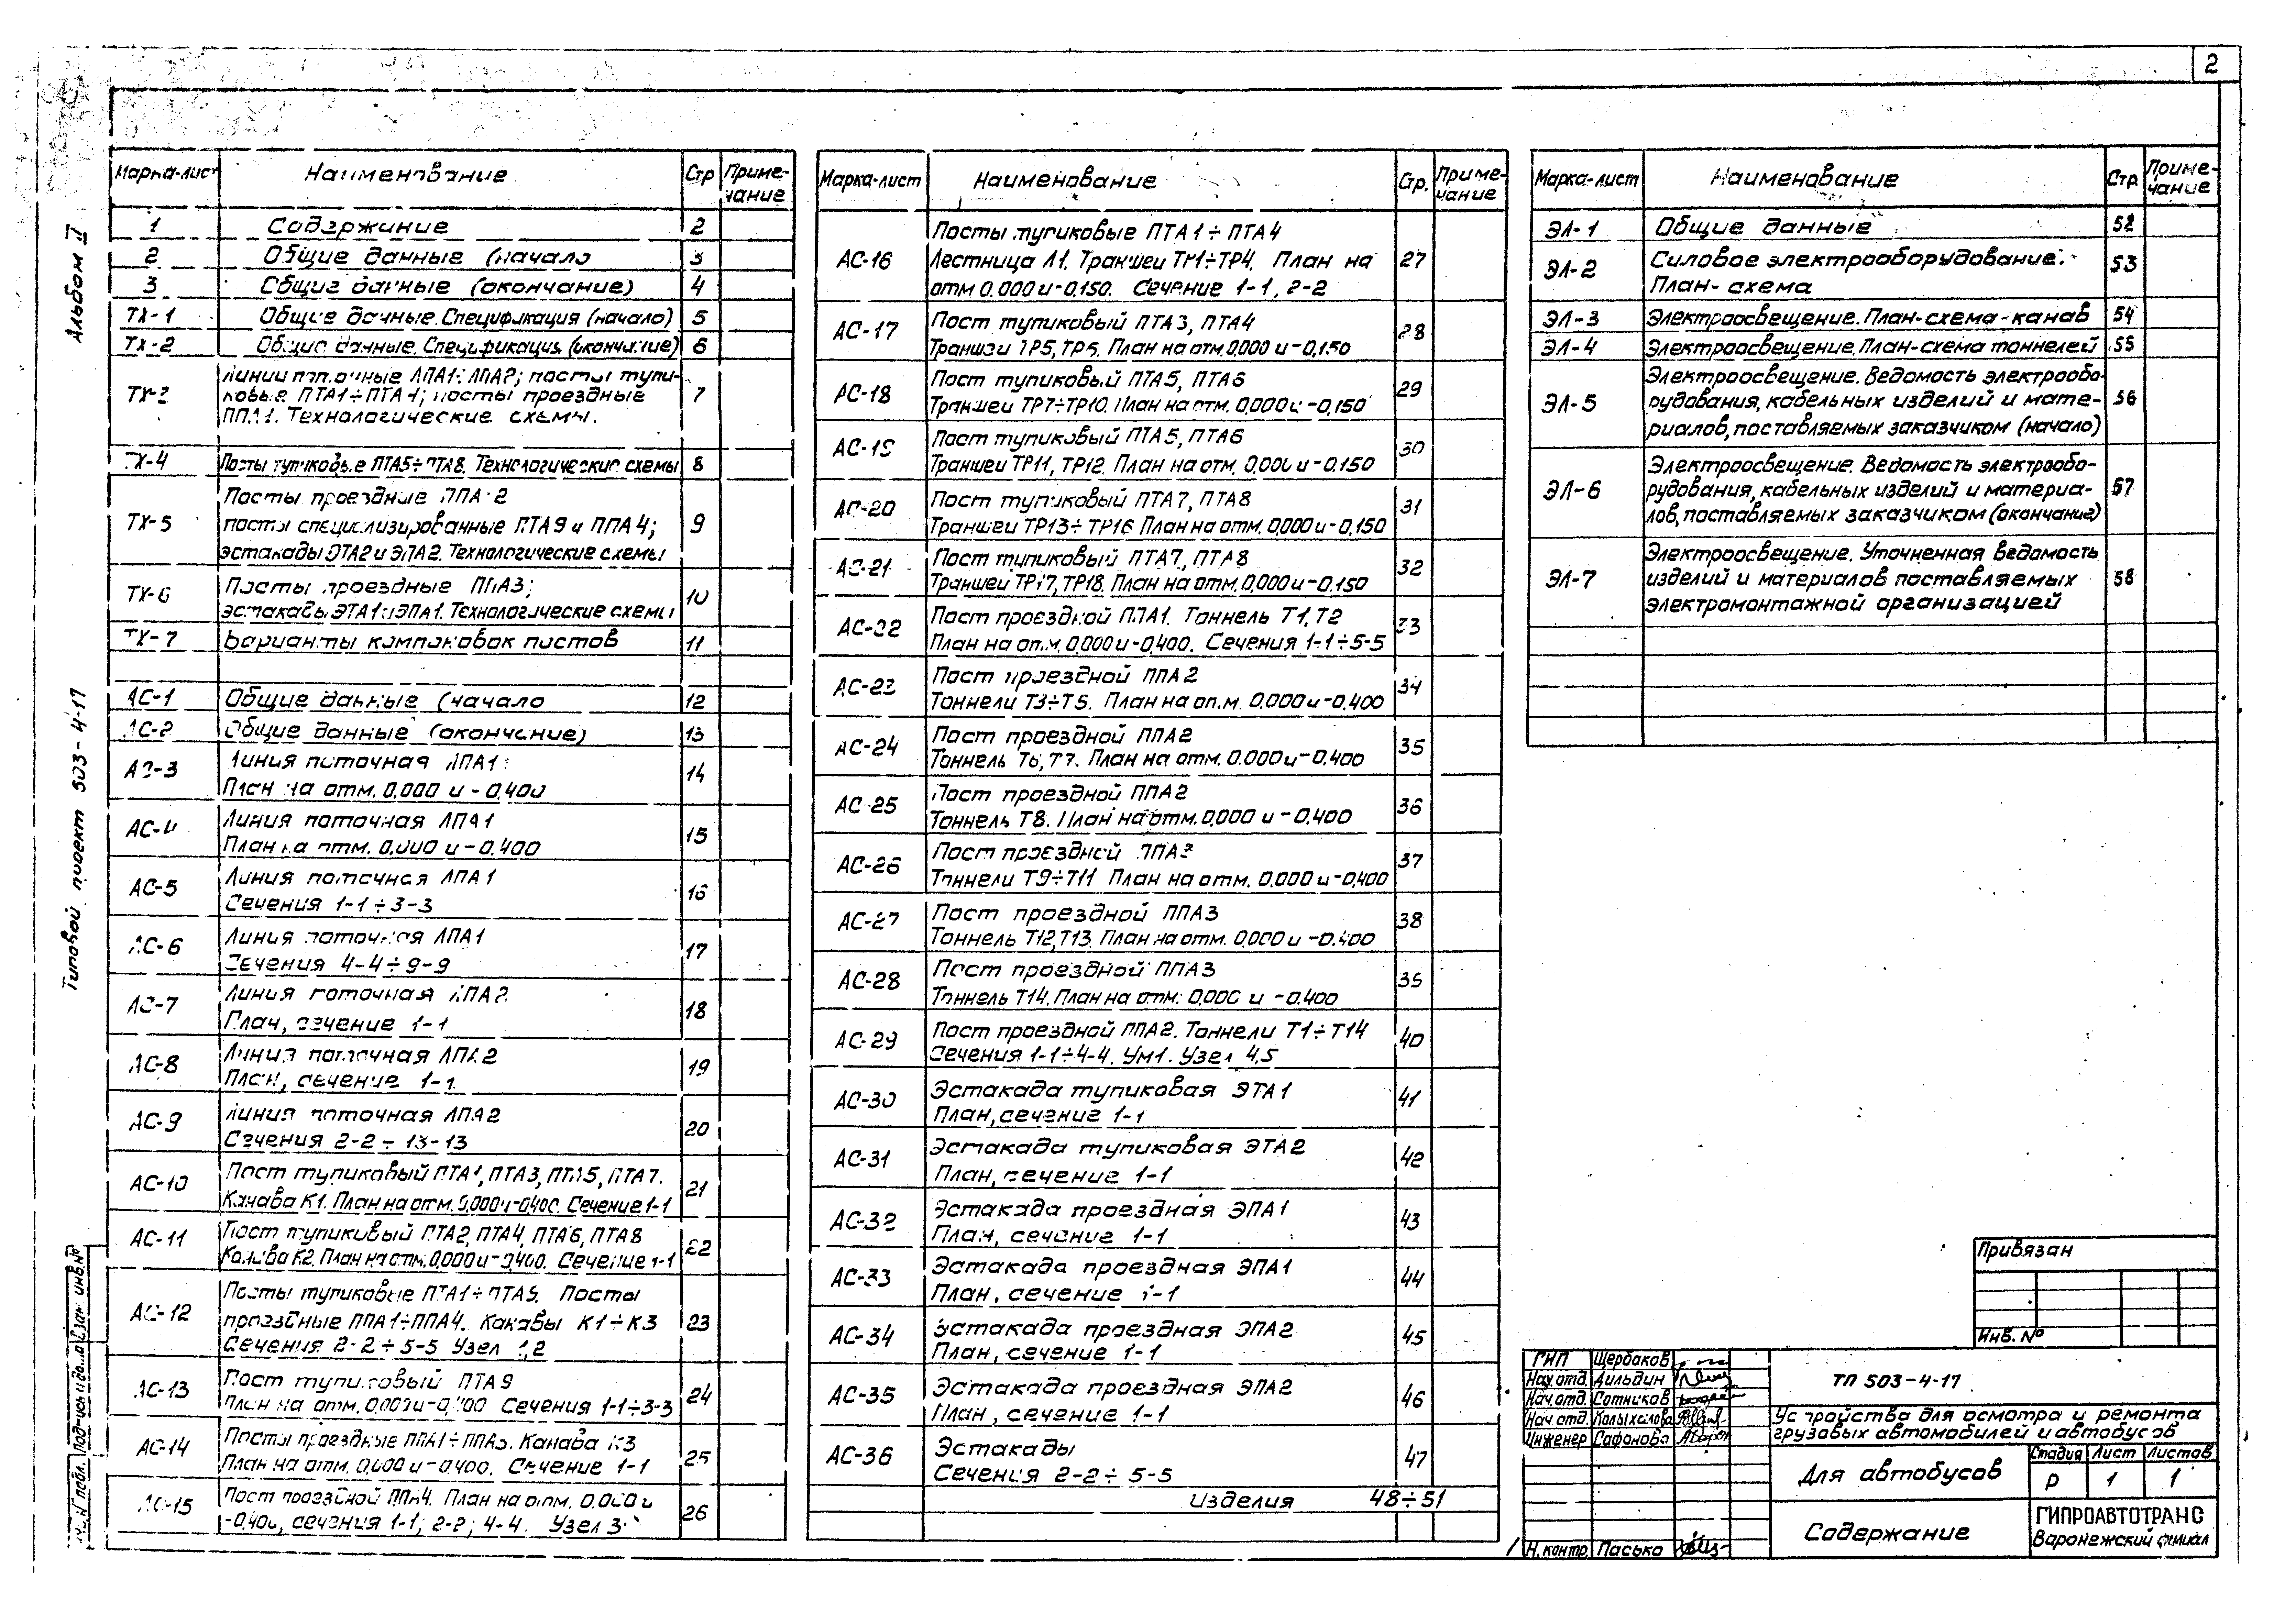 2
Альбом II
Типовой проект 503-4-17
Марка-лист Наименование Стр Приме-чание
1 Содержание 2
2 Общие данные (начало 3
3 Общие данные (окончание) 4
ТХ-1 Общие данные. Спецификация (начало) 5
ТХ-2 Общие данные. Спецификация (окончание) 6
Линии поточные ЛПА1; ЛПА2; посты тупи-
ТХ-3 ковые ПТА1÷ПТА4; посты проездные 7
ППА1. Технологические схемы.
ТХ-4 Посты тупиковые ПТА5÷ПТА8. Технологические схемы 8
Посты проездные ППА2
ТХ-5 посты специализированные ПТА9 и ППА4; 9
эстакады ЭТА2 и ЭПА2. Технологические схемы
ТХ-6 Посты проездные ППА3; 10
эстакады ЭТА1 и ЭПА1. Технологические схемы
ТХ-7 Варианты компоновок постов 11
АС-1 Общие данные (начало 12
АС-2 Общие данные (окончание) 13
АС-3 Линия поточная ЛПА1 14
План на отм. 0,000 и -0,400
АС-4 Линия поточная ЛПА1 15
План на отм. 0.000 и -0,400
АС-5 Линия поточная ЛПА1 16
Сечения 1-1÷3-3
АС-6 Линия поточная ЛПА1 17
Сечения 4-4÷9-9
АС-7 Линия поточная ЛПА2 18
План, сечение 1-1
АС-8 Линия поточная ЛПА2 19
План, сечение 1-1.
АС-9 Линия поточная ЛПА2 20
Сечения 2-2÷13-13
АС-10 Пост тупиковый ПТА1, ПТА3, ПТА5, ПТА7. 21
Канава К1. План на отм. 0,000 и -0,400. Сечение 1-1
АС-11 Пост тупиковый ПТА2, ПТА4, ПТА6, ПТА8 22
Канава К2. План на отм. 0,000 и -0,400. Сечение 1-1
Посты тупиковые ПТА1÷ПТА9. Посты
АС-12 проездные ППА1÷ППА4. Канавы К1÷К3 23
Сечения 2-2÷5-5 Узел 1,2
АС-13 Пост тупиковый ПТА9 24
План на отм. 0,000 и -0,400 Сечения 1-1÷3-3
АС-14 Посты проездные ППА1÷ППА3. Канава К3 25
План на отм. 0,000 и -0,400. Сечение 1-1
АС-15 Пост проездной ППА4. План на отм. 0,000 и 26
-0,400, сечения 1-1; 2-2; 4-4. Узел 3
Марка-лист Наименование Стр. Приме-чание
Посты тупиковые ПТА1÷ПТА4
АС-16 Лестница Л1. Траншеи ТР1÷ТР4. План на 27
отм 0,000 и -0,150. Сечение 1-1, 2-2
АС-17 Пост тупиковый ПТА3, ПТА4 28
Траншеи ТР5, ТР6. План на отм. 0,000 и -0,150
АС-18 Пост тупиковый ПТА5, ПТА6 29
Траншеи ТР7÷ТР10. План на отм. 0,000 и -0,150
АС-19 Пост тупиковый ПТА5, ПТА6 30
Траншеи ТР11, ТР12. План на отм. 0,000 и -0.150
АС-20 Пост тупиковый ПТА7, ПТА8 31
Траншеи ТР13÷ТР16 План на отм. 0,000 и -0,150
АС-21 Пост тупиковый ПТА7, ПТА8 32
Траншеи ТР17, ТР18. План на отм. 0,000 и -0.150
АС-22 Пост проездной ППА1. Тоннель Т1, Т2 33
План на отм. 0,000 и -0,400. Сечения 1-1÷5-5
АС-23 Пост проездной ППА2 34
Тоннели Т3÷Т5. План на отм. 0,000 и -0,400
АС-24 Пост проездной ППА2 35
Тоннель Т6, Т7. План на отм. 0.000 и -0,400
АС-25 Пост проездной ППА2 36
Тоннель Т8. План на отм. 0,000 и -0,400
АС-26 Пост проездной ППА3 37
Тоннели Т9÷Т11 План на отм. 0.000 и -0,400
АС-27 Пост проездной ППА3 38
Тоннель Т12, Т13. План на отм. 0,000 и -0.400
АС-28 Пост проездной ППА3 39
Тоннель Т14. План на отм. 0,000 и -0.400
АС-29 Пост проездной ППА2. Тоннели Т1÷Т14 40
Сечения 1-1÷4-4. Ум1. Узел 4,5
АС-30 Эстакада тупиковая ЭТА1 41
План, сечение 1-1
АС-31 Эстакада тупиковая ЭТА2 42
План, сечение 1-1
АС-32 Эстакада проездная ЭПА1 43
План, сечение 1-1
АС-33 Эстакада проездная ЭПА1 44
План, сечение 1-1
АС-34 Эстакада проездная ЭПА2 45
План, сечение 1-1
АС-35 Эстакада проездная ЭПА2 46
План, сечение 1-1
АС-36 Эстакады 47
Сечения 2-2÷5-5
Изделия 48÷51
Марка-лист Наименование Стр. Приме-чание
ЭЛ-1 Общие данные 52
ЭЛ-2 Силовое электрооборудование. 53
План-схема
ЭЛ-3 Электроосвещение. План-схема канав 54
ЭЛ-4 Электроосвещение. План-схема тоннелей 55
Электроосвещение. Ведомость электрообо-
ЭЛ-5 рудования, кабельных изделий и мате- 56
риалов, поставляемых заказчиком (начало)
Электроосвещение. Ведомость электрообо-
ЭЛ-6 рудования, кабельных изделий и материа- 57
лов, поставляемых заказчиком (окончание)
Электроосвещение. Уточненная ведомость
ЭЛ-7 изделий и материалов поставляемых 58
электромонтажной организацией
Привязан
Инв. №
ГИП Щербаков
Нач. отд. Аильдин
Нач. отд. Сотников
Нач. отд. Колыхалова
Инженер Сафонова
Н. контр. Пасько
ТП 503-4-17
Устройства для осмотра и ремонта
грузовых автомобилей и автобусов
Для автобусов
Стадия Лист Листов
Р 1 1
Содержание
ГИПРОАВТОТРАНС
Воронежский филиал
Взам. инв. №
Подпись и дата